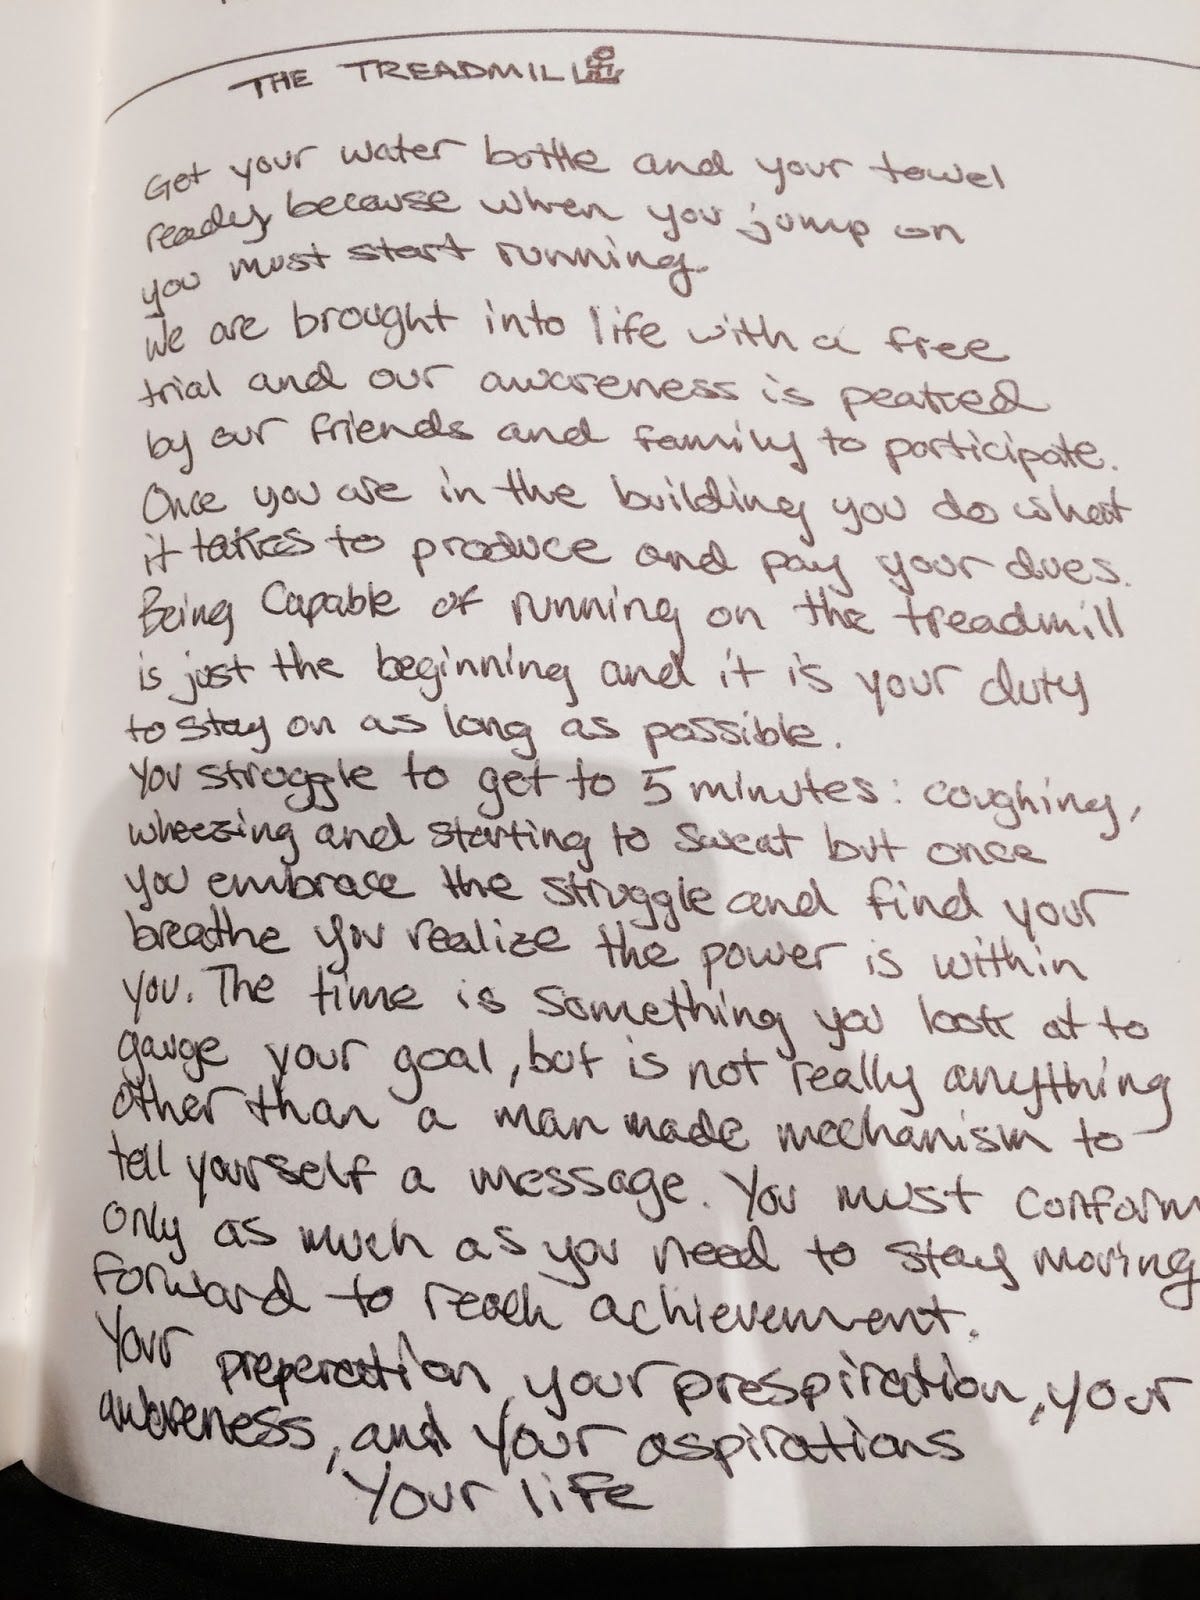 THE TREADMILL
Get your water bottle and your towel
ready because when you jump on
you must start running.
We are brought into life with a free
trial and our awareness is peaked
by our friends and family to participate.
Once you are in the building you do what
it takes to produce and pay your dues.
Being Capable of running on the treadmill
is just the beginning and it is your duty
to stay on as long as possible.
You struggle to get to 5 minutes: coughing,
wheezing and starting to sweat but once
you embrace the struggle and find your
breathe you realize the power is within
you. The time is something you look at to
gauge your goal, but is not really anything
other than a man made mechanism to
tell yourself a message. You must conform
only as much as you need to stay moving
forward to reach achievement.
Your preperation, your prespiration, your
awareness, and your aspirations
Your life